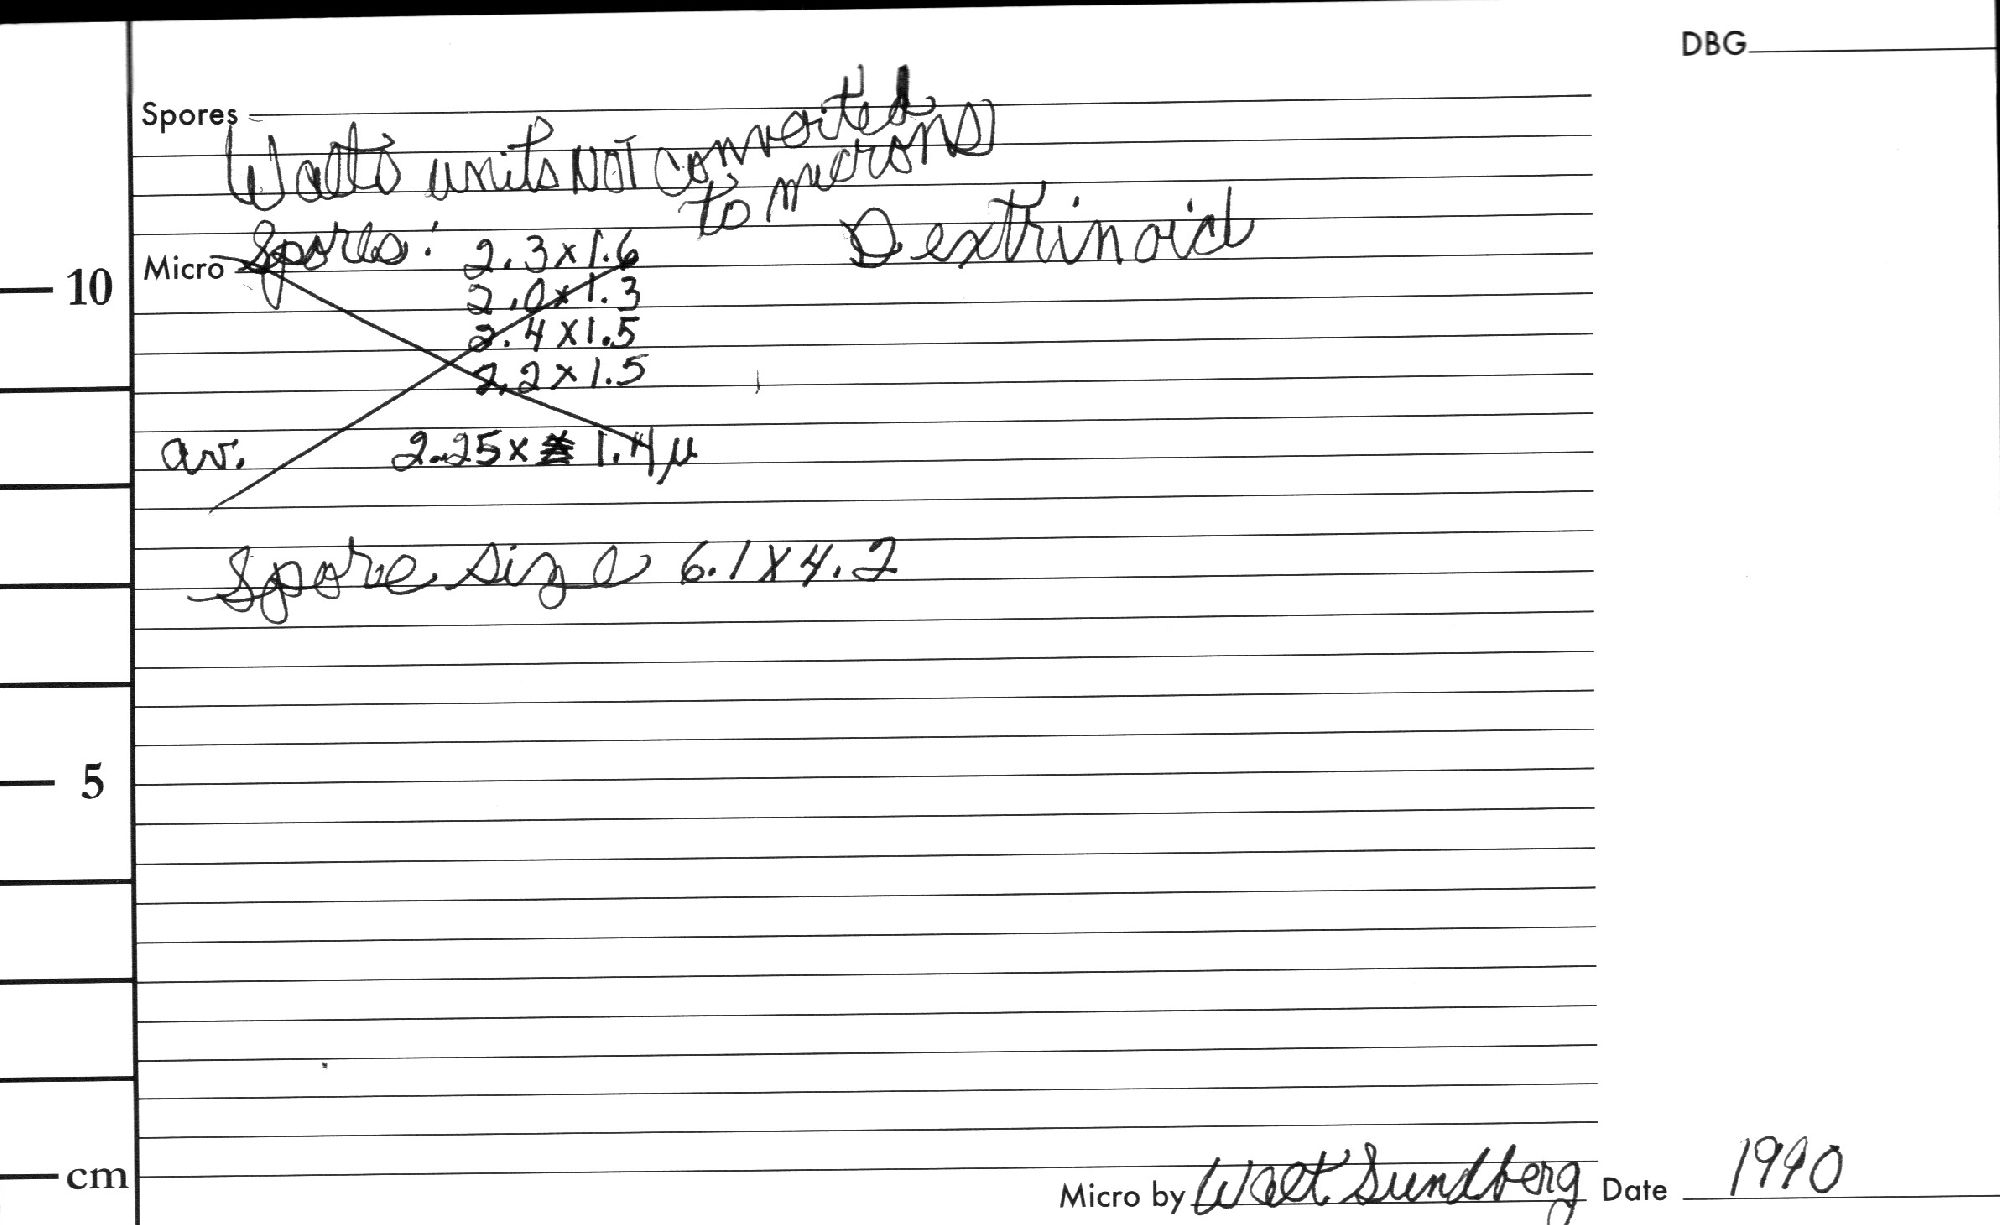 DBG
Spores
Walt's units NOT converted
to microns
Dextrinoid
Micro Spores: 2.3 x 1.6
10
2.0 x 1.3
2.4 x 1.5
2.2 x 1.5
av. 2.25 x 1.4 µ
Spore size 6.1 x 4.2
5
cm
Micro by Walt Sundberg Date 1990